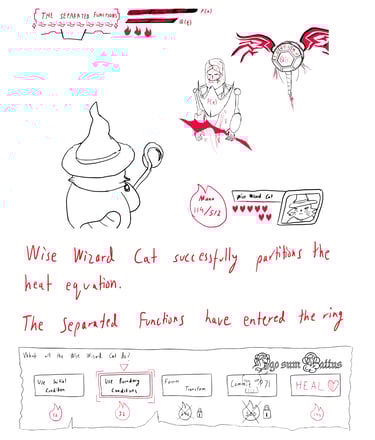 THE SEPARATED FUNCTIONS
F(x)
Mana
114/512
Wise Wizard Cat
Wise Wizard Cat successfully partitions the
heat equation.
The Separated Functions have entered the ring
What will the Wise Wizard Cat do?
Ego sum Cattus
Use Initial
Condition
Use Boundary
Conditions
Fourier
Transform
Commit
HEAL